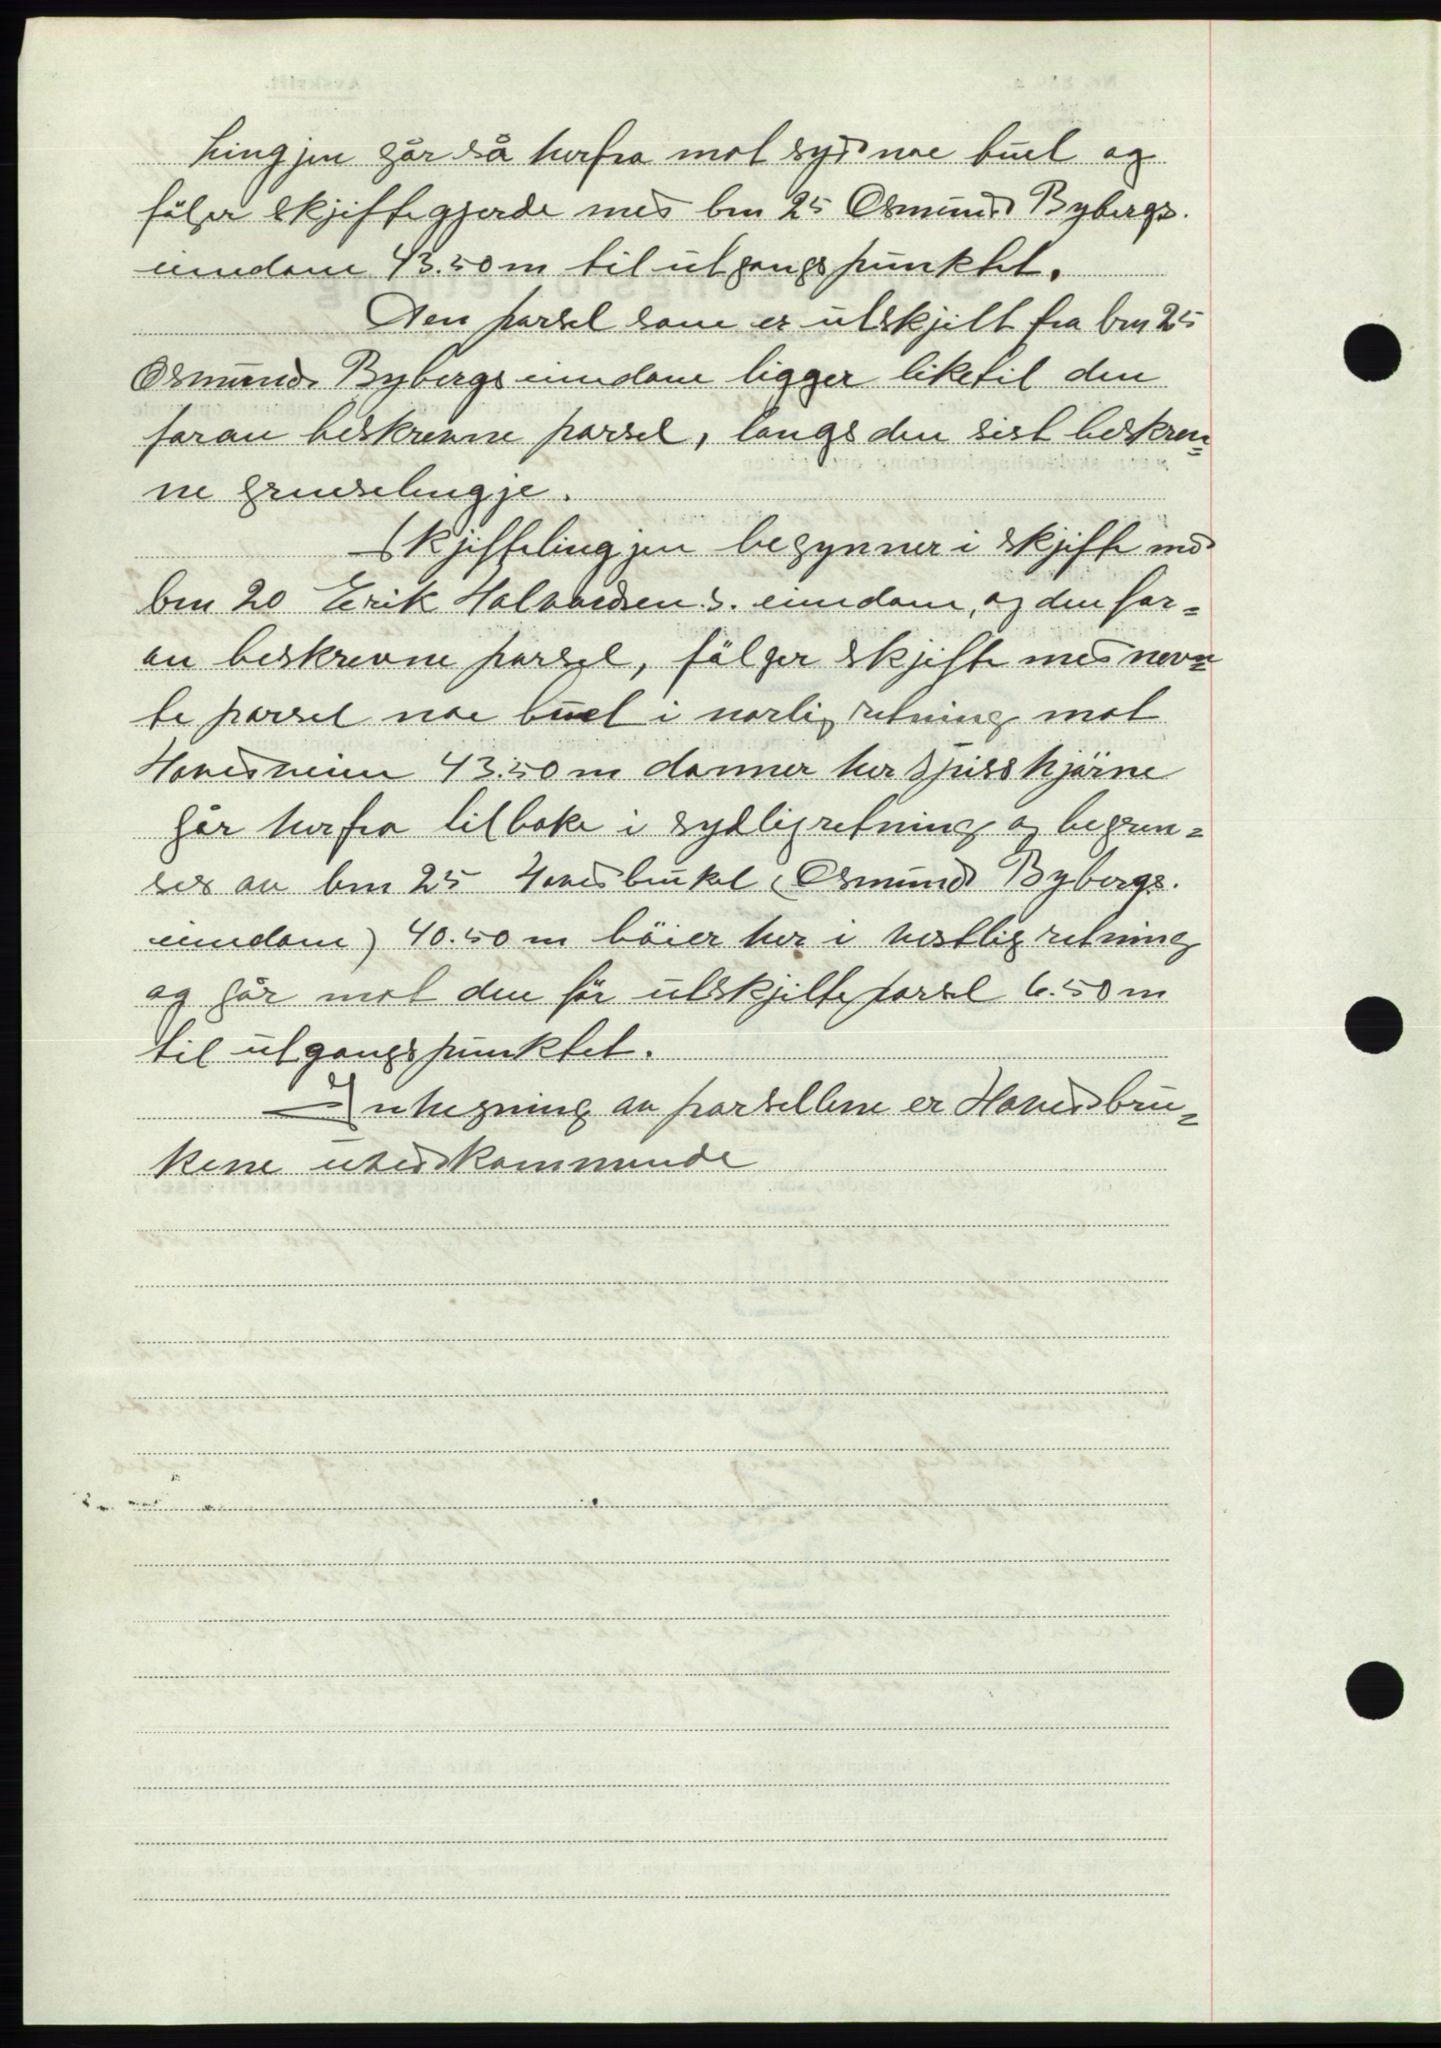 Lingjen går så herfra mot syd noe buet og
følger skjiftegjerde med bm 25 Osmund Bybergs.
eiendom 43.50 m til utgangspunktet.
Den parsel som er utskjilt fra bm 25
Osmund Bybergs eiendom ligger liketil den
foran beskrevne parsel, langs den sist beskrev=
ne grenselingje.
Skjiftelingjen begynner i skjifte med
bm 20 Erik Halvardsen.s. eiendom, og den for=
an beskrevne parsel, følger skjifte med nevn=
te parsel noe buet i norlig retning mot
Hovedveien 43.50 m danner her spisshjørne
går herfra tilbake i sydlig retning og begren=
ses av bm 25 Hovedbruket (Osmund Bybergs.
eiendom) 40.50 m bøier her i vestlig retning
og går mot den før utskjilte parsel 6.50 m
til utgangspunktet.
Inhegning av parsellene er Hovedbru=
kene uvedkommende